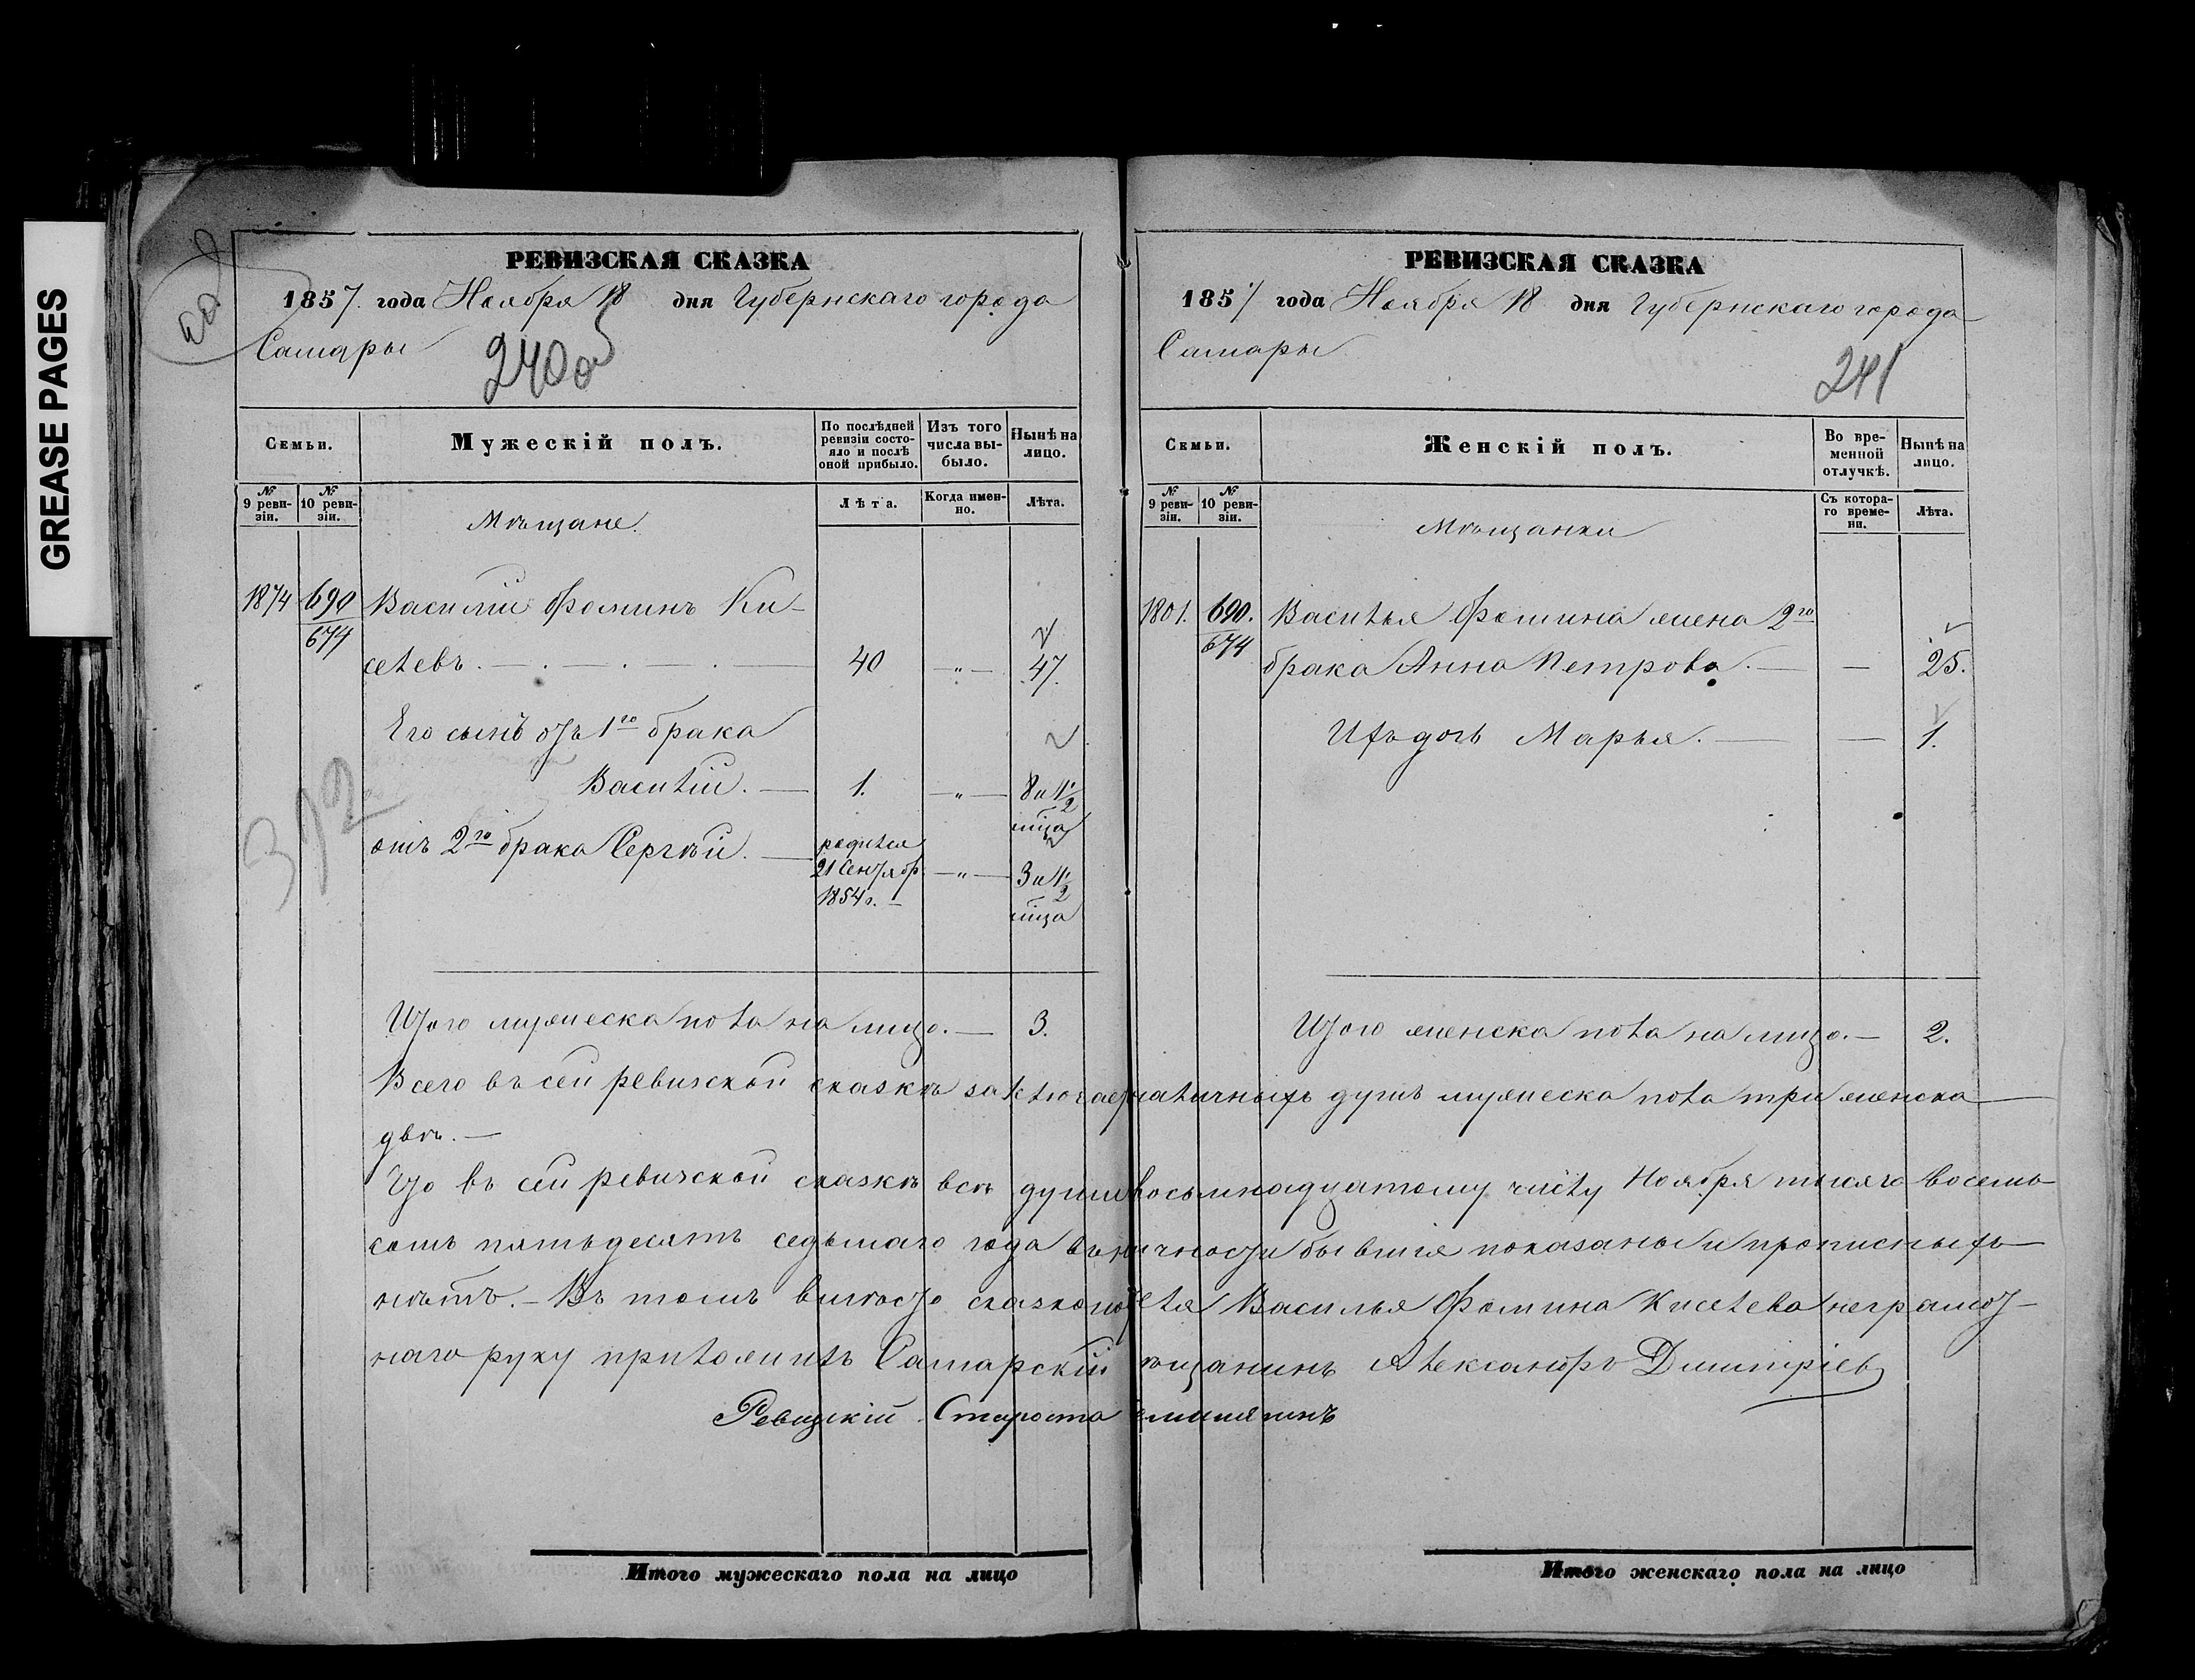 GREASE PAGES
РЕВИЗСКАЯ СКАЗКА
1857. года Ноября 18 дня Губернскаго города
Самары
240 об
Семьи.
Мужескій полъ.
По послѣдней ревизіи состояло и послѣ оной прибыло.
Изъ того числа выбыло.
Нынѣ на лицо.
№ 9 ревизіи.
№ 10 ревизіи.
Мѣщане.
Лѣта.
Когда именно.
Лѣта.
1874 690/674 Василій Фоминъ Ки-
селевъ. 40 -"- 47.
Его сынъ отъ 1го брака
Василій. 1. -"- 8 и 1/2
мѣца
отъ 2го брака Сергѣй. родился 21 Сентябр. 1854 г. -"- 3 и 1/2
мѣца
392
Итого мужеска пола на лицо. 3.
РЕВИЗСКАЯ СКАЗКА
1857 года Ноября 18 дня Губернскаго города
Самары
241
Семьи.
Женскій полъ.
Во временной отлучкѣ.
Нынѣ на лицо.
№ 9 ревизіи.
№ 10 ревизіи.
Мѣщанки
Съ котораго времени.
Лѣта.
1801. 690./674 Василья Фомина жена 2го
брака Анна Петрова. — 25.
Ихъ дочь Марья. — 1.
Итого женска пола на лицо. 2.
Всего въ сей ревизской сказкѣ заключает наличныхъ душъ мужеска пола три женска
двѣ.—
Что въ сей ревизской сказкѣ всѣ души восьмнадцатому числу Ноября тысяча восемь
сотъ пятьдесятъ седьмаго года въ личности бывшія показаны и прописныхъ
нѣтъ.— Въ томъ вмѣсто сказко Василья Фомина Киселева неграмот-
наго руку приложилъ Самарскій ѣщанинъ Александръ Дмитріев
Ревизскій Староста
Итого мужескаго пола на лицо
Итого женскаго пола на лицо